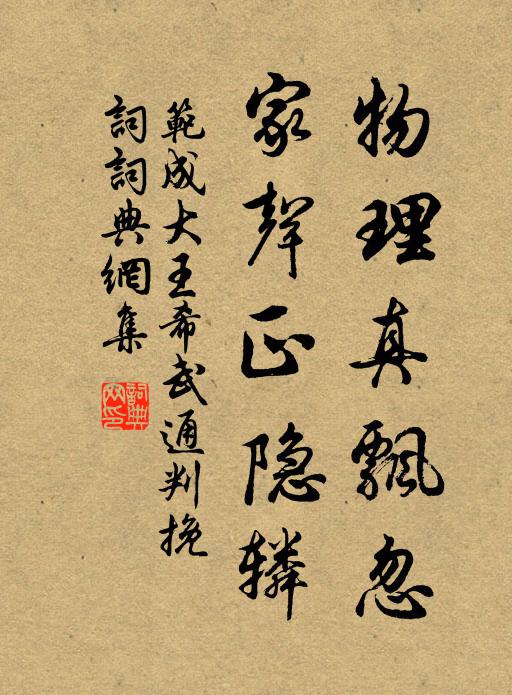 物理真飄忽
家聲正隐辚
範成大王希武通判挽
詞詞典網集
詞典網印